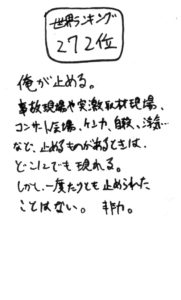 世界ランキング
272位
俺が止める。
事故現場や実激取材現場、
コンサート会場、ケンカ、自殺、浮気…
など、止めるものがあるときは、
どこにでも現れる。
しかし、一度たりとも止められた
ことはない。 非力。